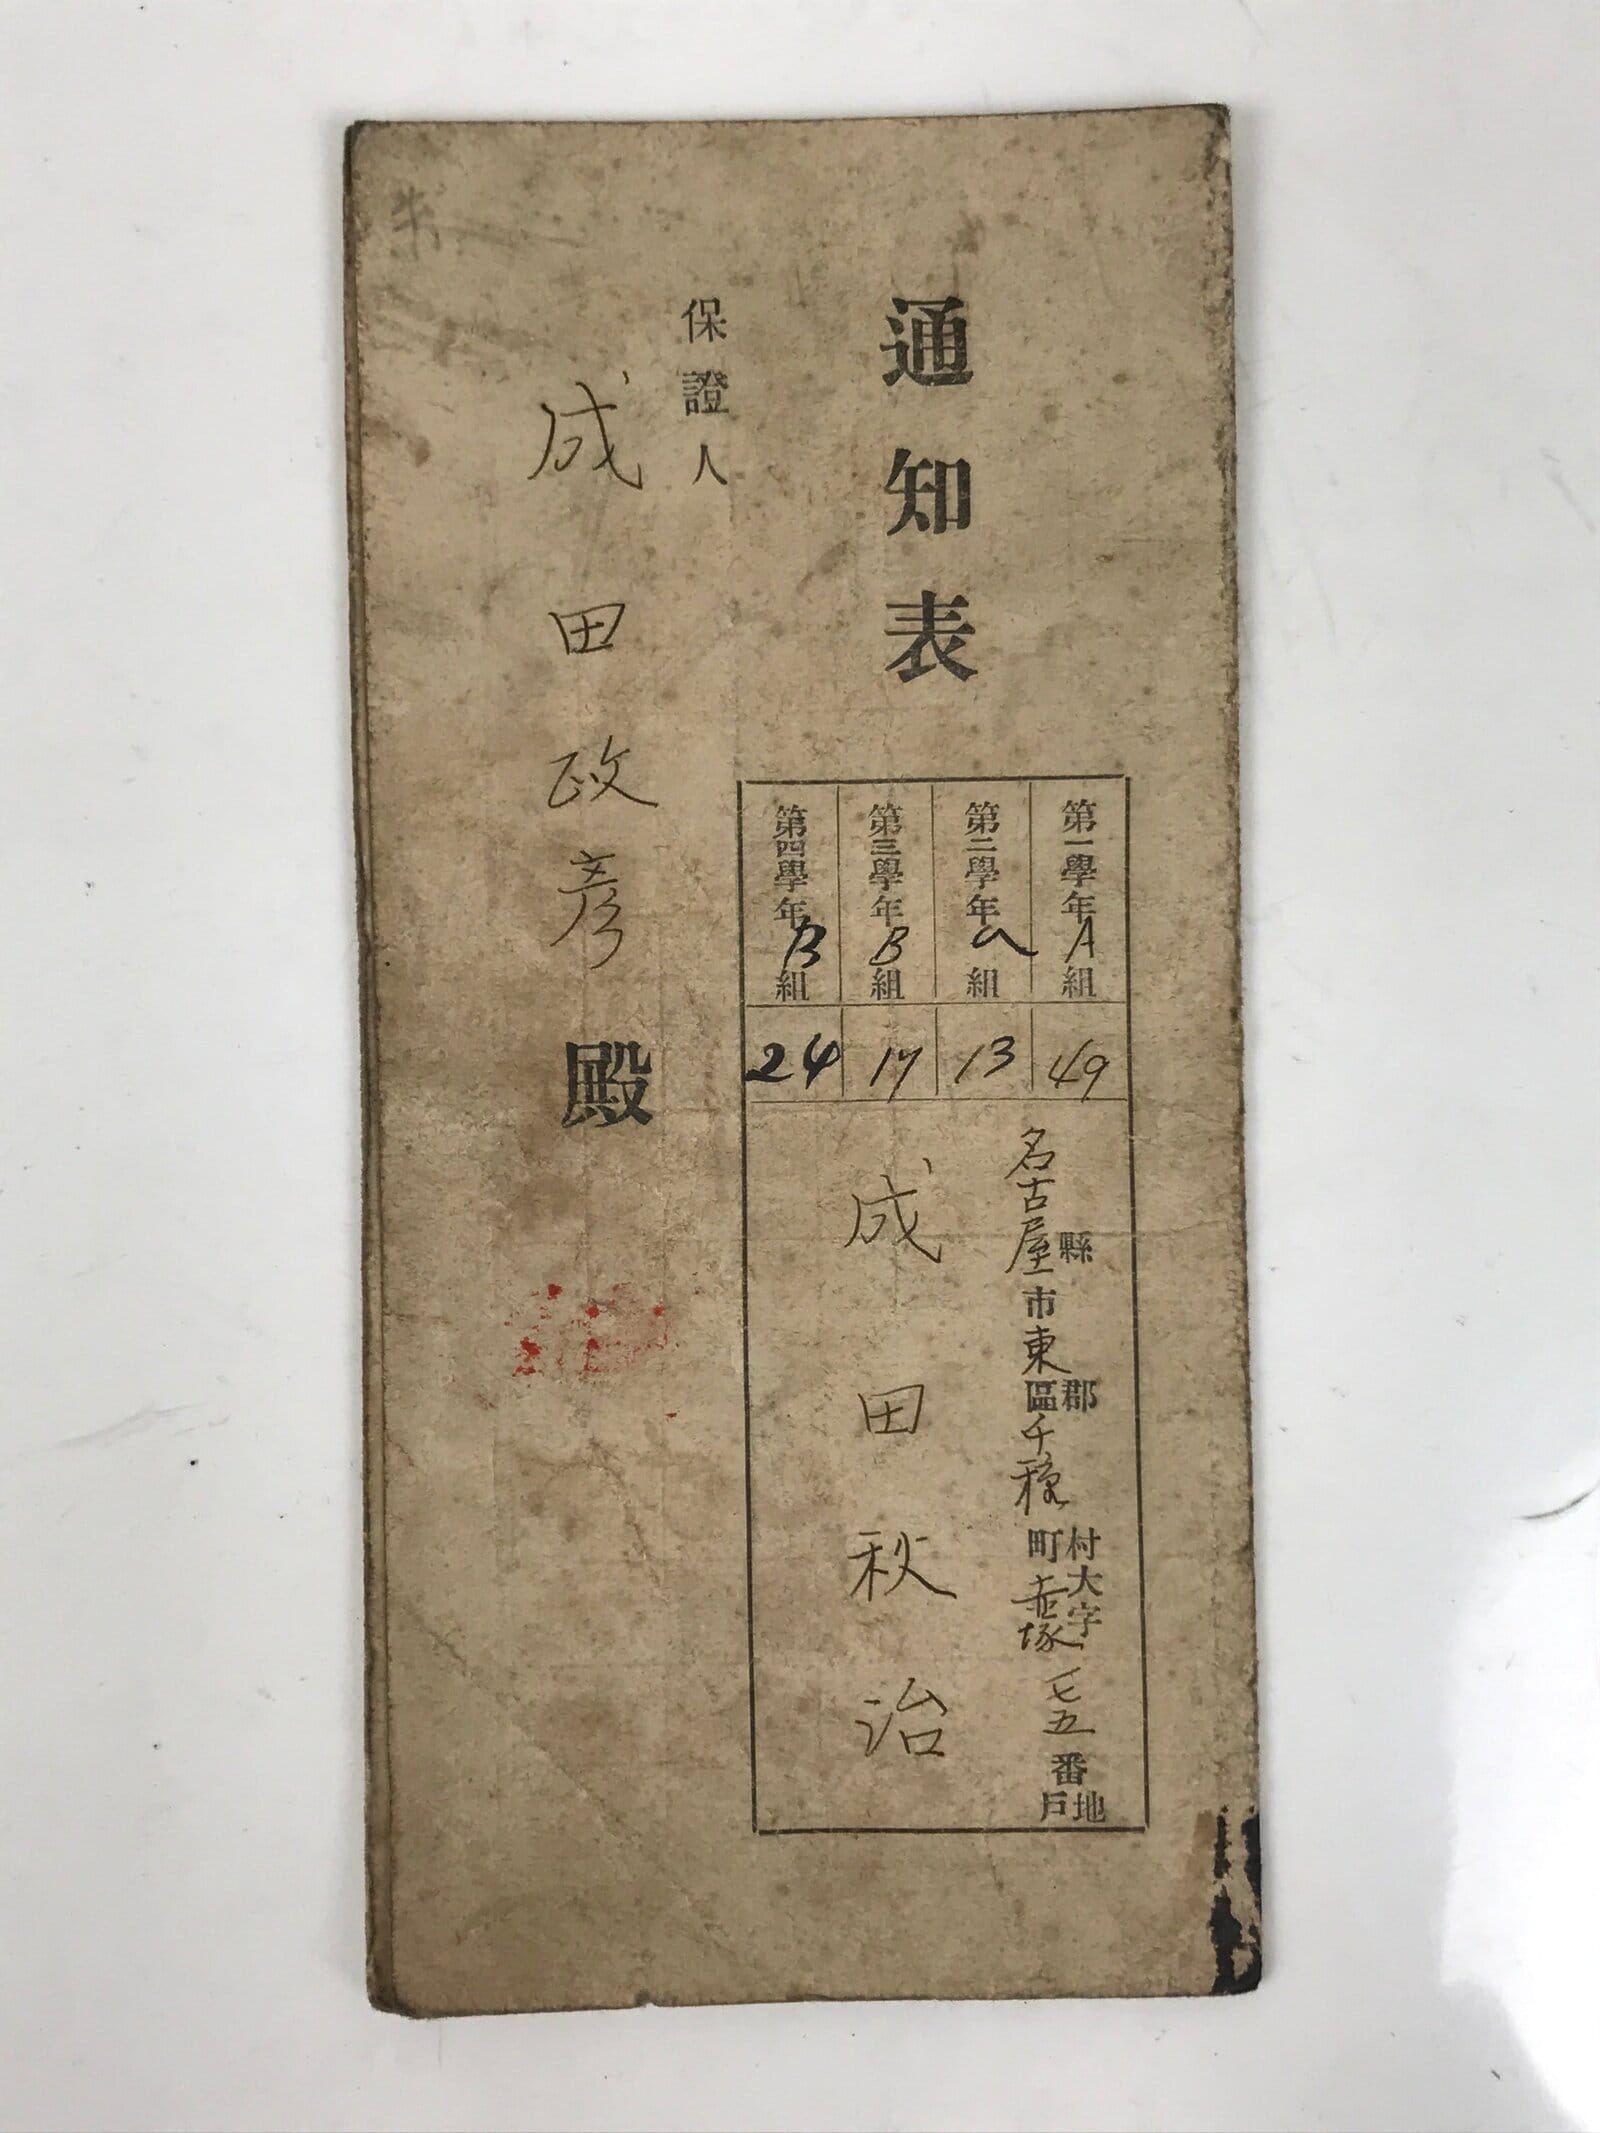 通知表
第一學年A組 49
第二學年 組 13
第三學年B組 17
第四學年B組 24
縣
名古屋市東區郡千種町村大字赤塚 七五番地戶
成田秋治
保證人
成田政彦殿